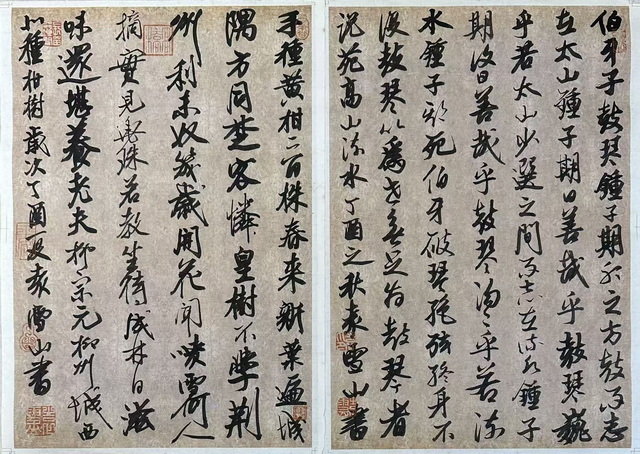 伯牙子鼓琴鍾子期聽之方鼓而志
在太山鍾子期曰善哉乎鼓琴巍巍
乎若太山少選之間而志在流水鍾子
期復曰善哉乎鼓琴湯湯乎若流
水鍾子期死伯牙破琴絕弦終身不
復鼓琴以為世無足為鼓琴者
說苑高山流水丁酉之秋末雪山書
手種黃柑二百株春來新葉遍城
隅方同楚客憐皇樹不學荊
州利木奴幾歲開花聞噴雪何人
摘實見垂珠若教坐待成林日滋
味還堪養老夫柳宗元柳州城西
北種柑樹歲次丁酉夏亥雪山書